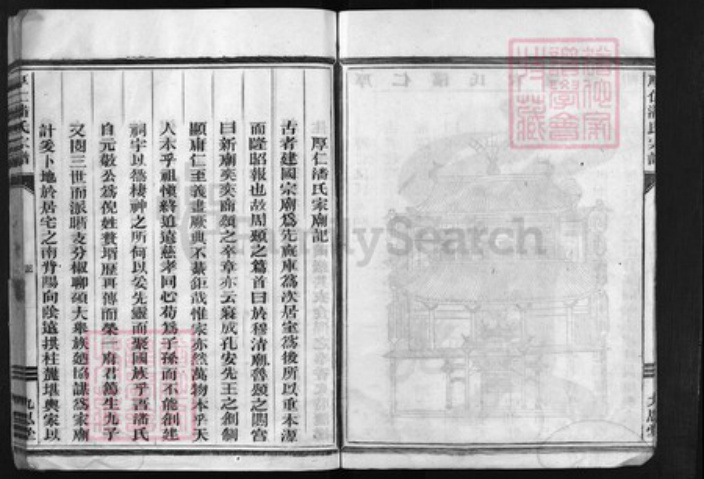 厚仁潘氏家廟記
古者建國宗廟爲先廄庫爲次居室爲後所以重本源
而隆昭報也故周頌之篇首曰於穆清廟魯頌之閟宮
曰新廟奕奕商頌之卒章亦云寢成孔安先王之創制
顯庸仁至義盡厥典不綦鉅哉惟家亦然萬物本乎天
人本乎祖愼終追遠慈孝同心苟爲子孫而不能創建
祠宇以爲棲神之所何以妥先靈而聚國族乎吾潘氏
自元敬公爲倪姓贅壻歷再傳而榮一府君篤生九子
又閱三世而派衍支分椒聊碩大舉族廼協謀爲家廟
計爰卜地於居宅之南背陽向陰遠拱柱龍堪輿家以
厚仁潘氏宗譜
FamilySearch